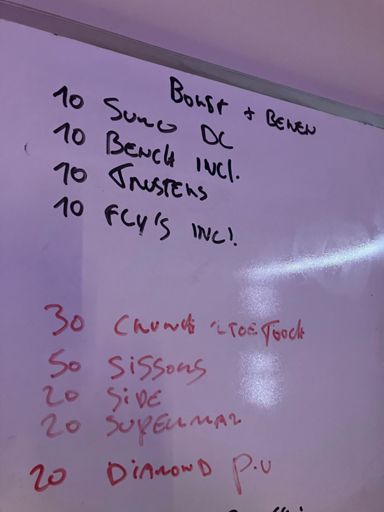 BORST + BENEN
10 SUMO DC
10 BENCH INCl.
10 TRUSTERS
10 FLY'S INCl.
30 CRUNCH TOETOUCH
50 SISSORS
20 SiDE
20 SUPERMAN
20 DIAMOND P.U